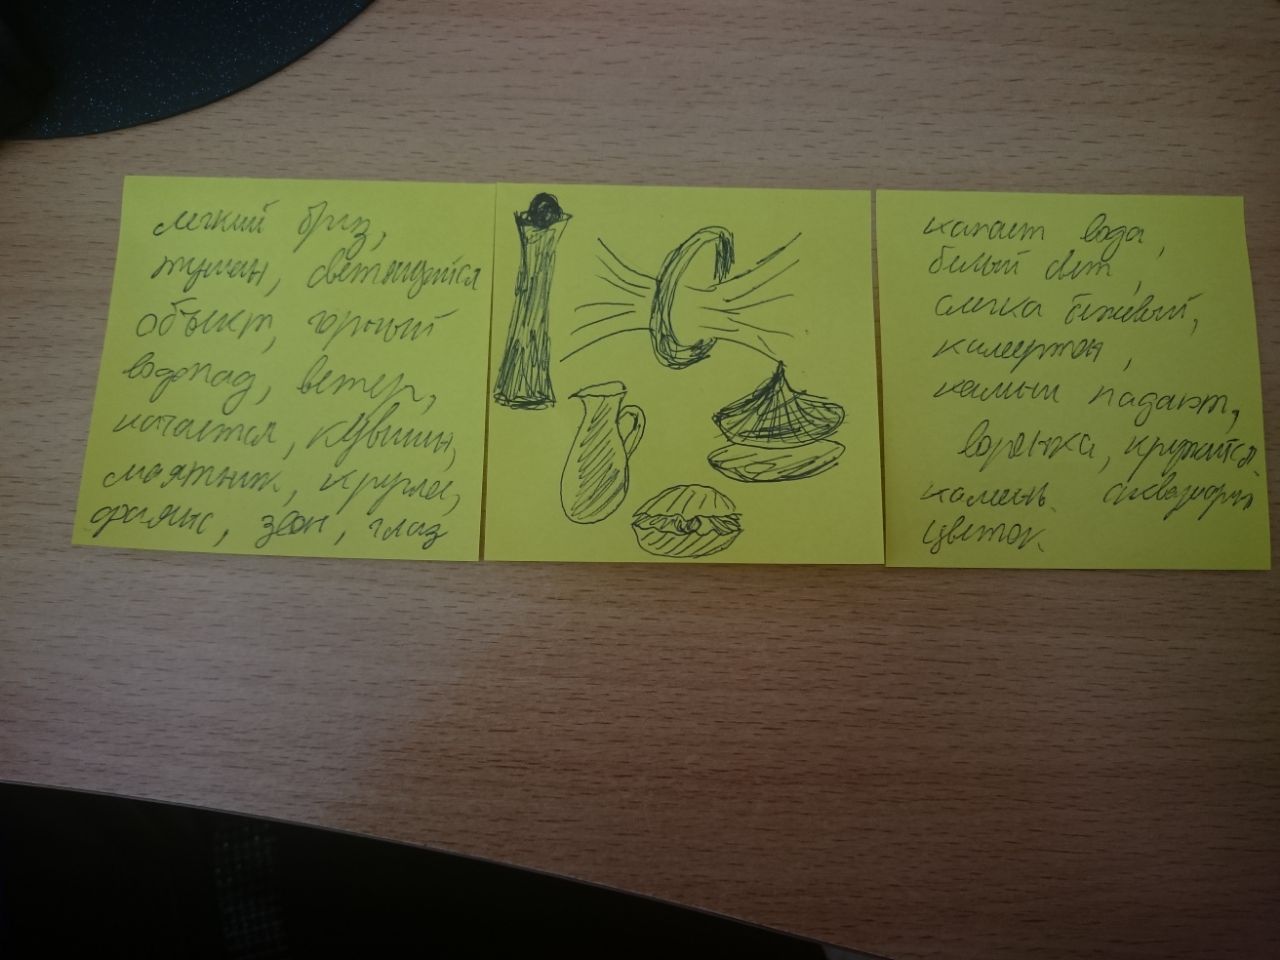 легкий бриз,
туман, светящийся
объект, горный
водопад, ветер,
качается, кувшин,
маятник, круглое,
фаянс, звон, глаз
капает вода,
белый свет,
слегка бежевый,
камертон,
камыш падают,
воронка, кружится.
камень аквамарин
цветок.